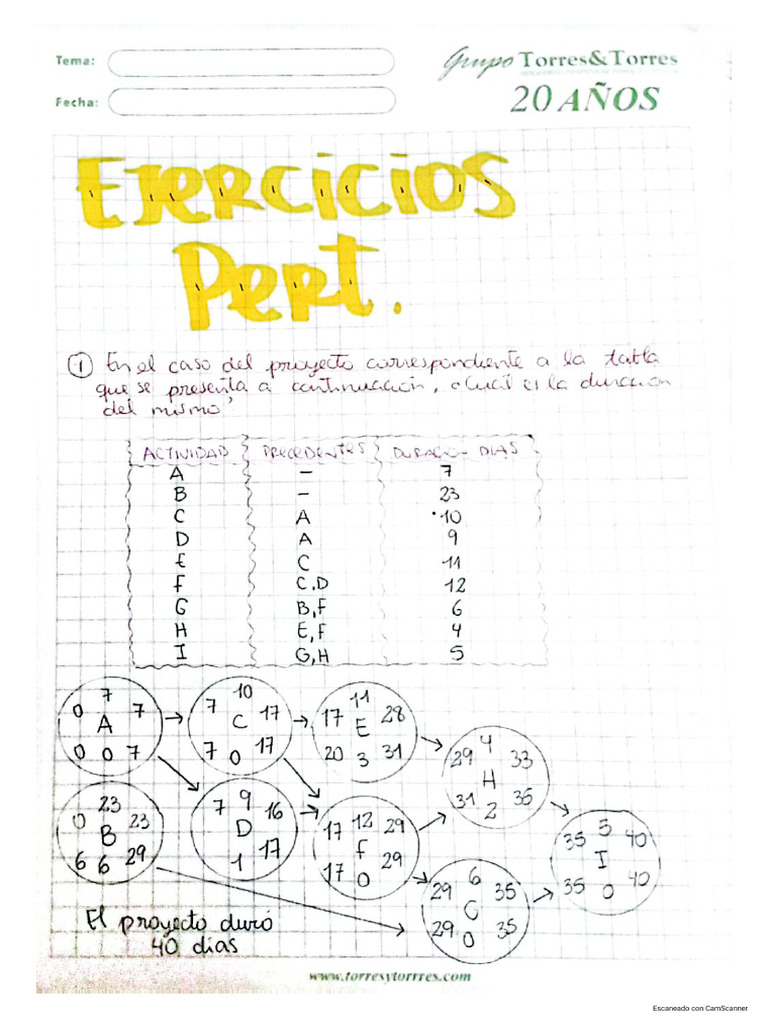 Tema:
Grupo Torres&Torres
Fecha:
20 AÑOS
EJERCICIOS
Pert.
① En el caso del proyecto correspondiente a la tabla
que se presenta a continuación, ¿Cuál es la duración
del mismo?
ACTIVIDAD PRECEDENTES DURACION DIAS
A - 7
B - 23
C A 10
D A 9
E C 11
F C,D 12
G B,F 6
H E,F 4
I G,H 5
0 7 7
A
0 0 7
7 10 17
C
7 0 17
17 11 28
E
20 3 31
29 4 33
H
31 2 35
0 23 23
B
6 6 29
7 9 16
D
1 17
17 12 29
F
17 0 29
29 6 35
G
29 0 35
35 5 40
I
35 0 40
El proyecto duró
40 días
www.torresytorrres.com
Escaneado con CamScanner